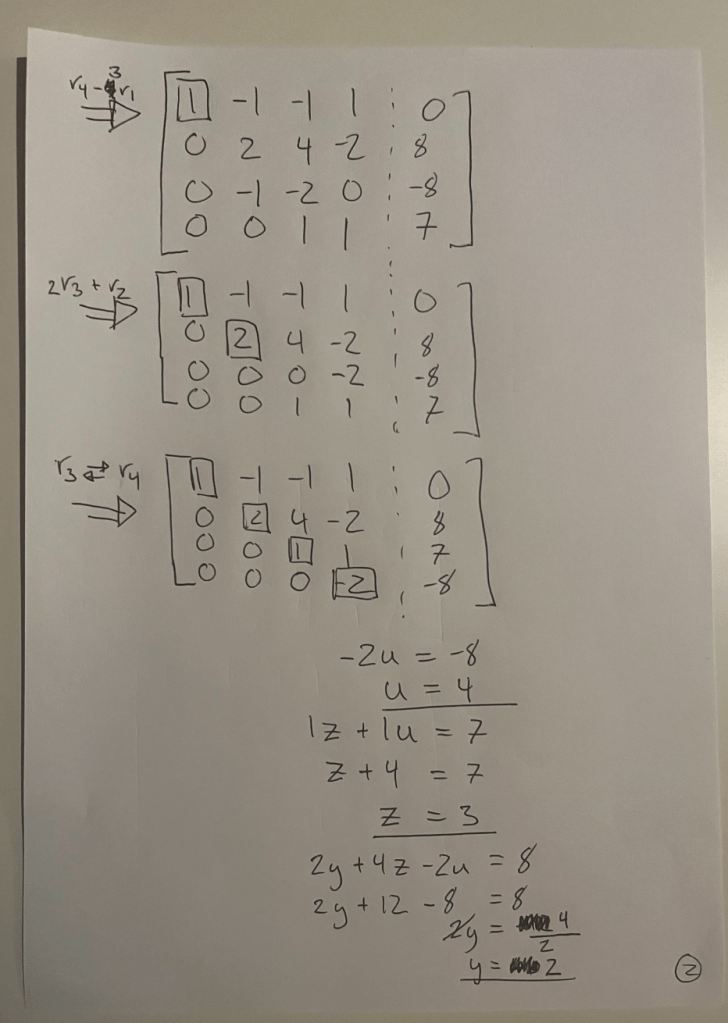 r4 - 3r1 ⇒ [ 1 -1 -1 1 ⋮ 0 ]
0 2 4 -2 8
0 -1 -2 0 -8
0 0 1 1 7
2r3 + r2 ⇒ [ 1 -1 -1 1 ⋮ 0 ]
0 2 4 -2 8
0 0 0 -2 -8
0 0 1 1 7
r3 ⇄ r4 ⇒ [ 1 -1 -1 1 ⋮ 0 ]
0 2 4 -2 8
0 0 1 1 7
0 0 0 -2 -8
-2u = -8
u = 4
1z + 1u = 7
z + 4 = 7
z = 3
2y + 4z - 2u = 8
2y + 12 - 8 = 8
2y = 4/2
y = 2
2